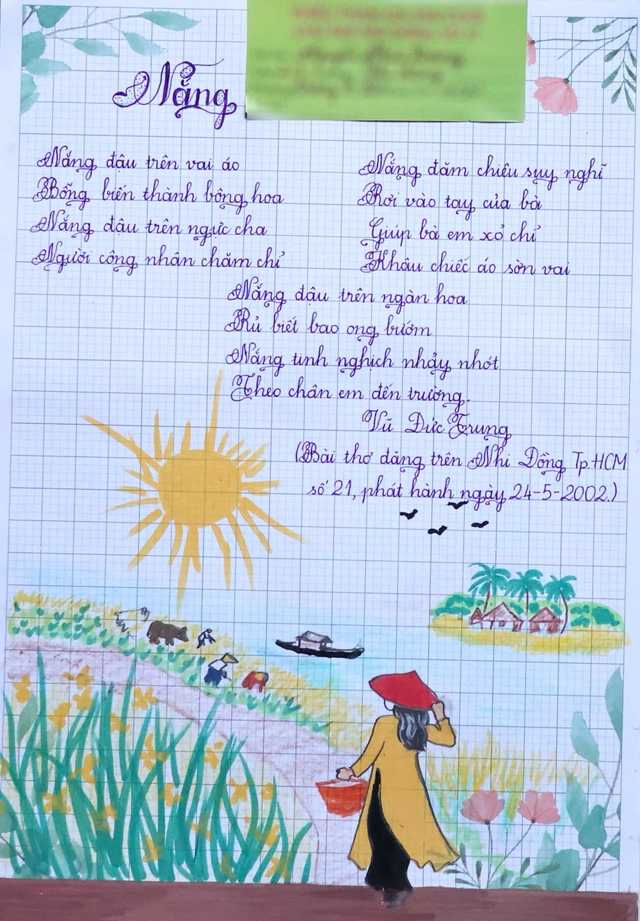 Nắng
Nắng đậu trên vai áo
Bỗng biến thành bông hoa
Nắng đậu trên ngực cha
Người công nhân chăm chỉ
Nắng đăm chiêu suy nghĩ
Rơi vào tay của bà
Giúp bà em xỏ chỉ
Khâu chiếc áo sờn vai
Nắng đậu trên ngàn hoa
Rủ biết bao ong bướm
Nắng tinh nghịch nhảy nhót
Theo chân em đến trường.
Vũ Đức Trung
(Bài thơ đăng trên Nhi Đồng Tp.HCM
số 21, phát hành ngày 24-5-2002.)